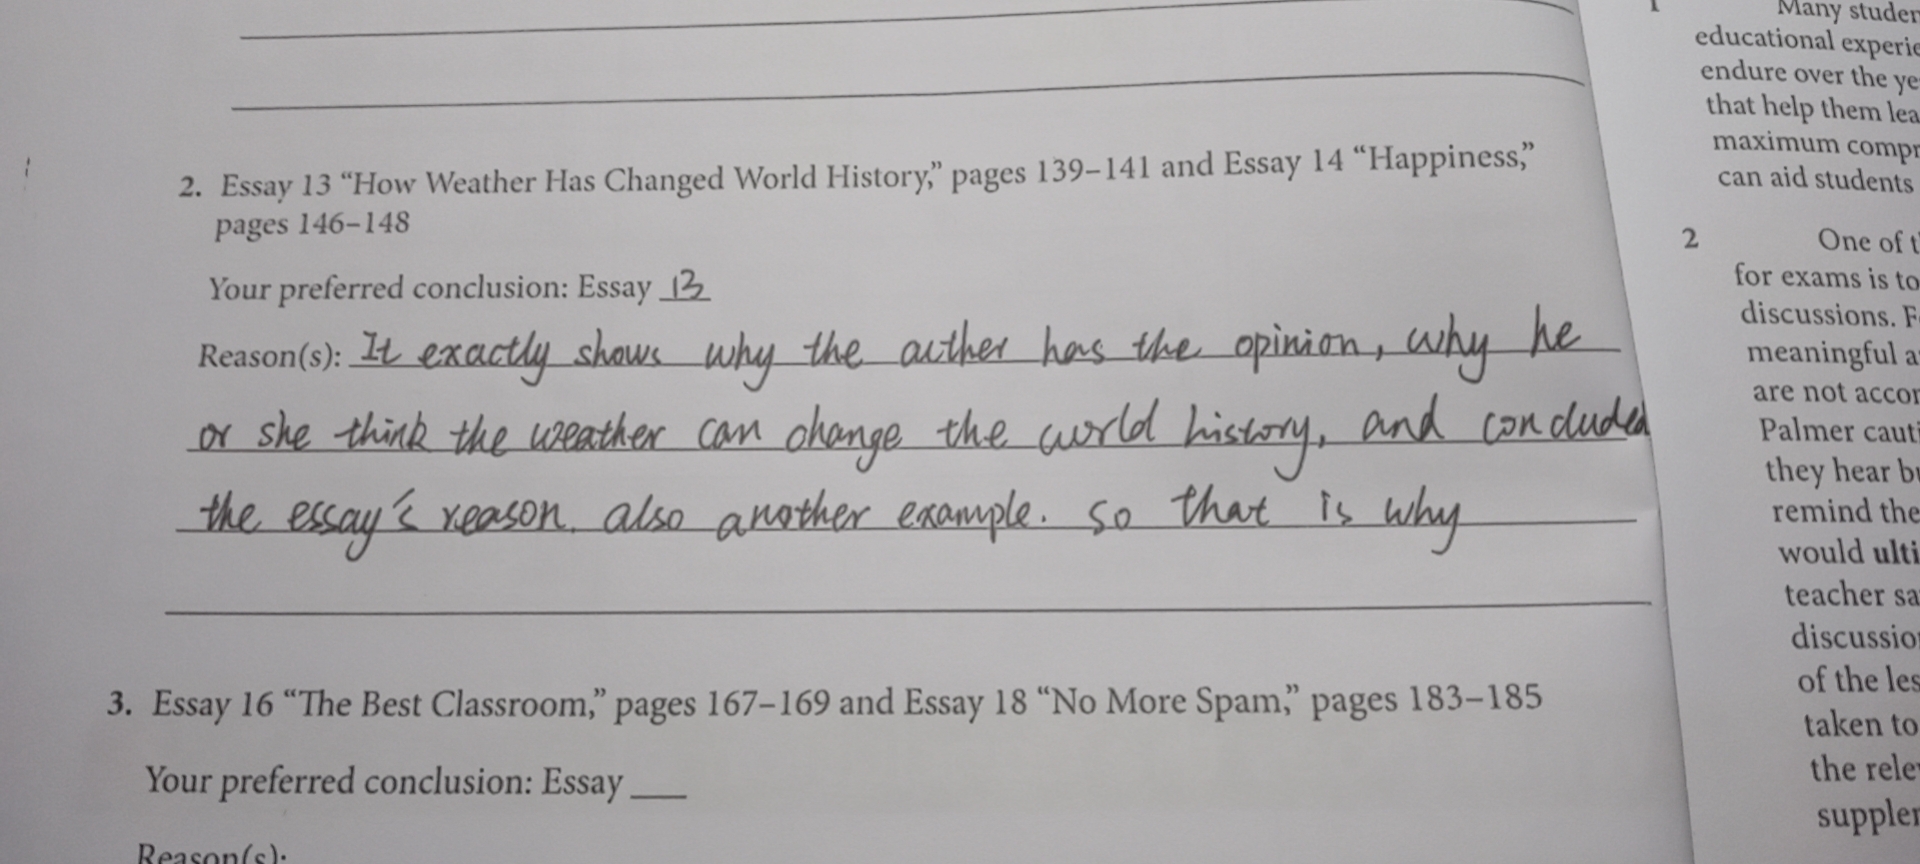 2. Essay 13 “How Weather Has Changed World History,” pages 139–141 and Essay 14 “Happiness,”
pages 146–148
Your preferred conclusion: Essay 13
Reason(s): It exactly shows why the auther has the opinion, why he
or she think the weather can change the world history, and concluded
the essay's reason. also another example. so that is why
3. Essay 16 “The Best Classroom,” pages 167–169 and Essay 18 “No More Spam,” pages 183–185
Your preferred conclusion: Essay
Reason(s):
1 Many studen
educational experie
endure over the ye
that help them lea
maximum compr
can aid students
2 One of t
for exams is to
discussions. F
meaningful a
are not accor
Palmer cauti
they hear bu
remind the
would ulti
teacher sa
discussio
of the les
taken to
the rele
supplem